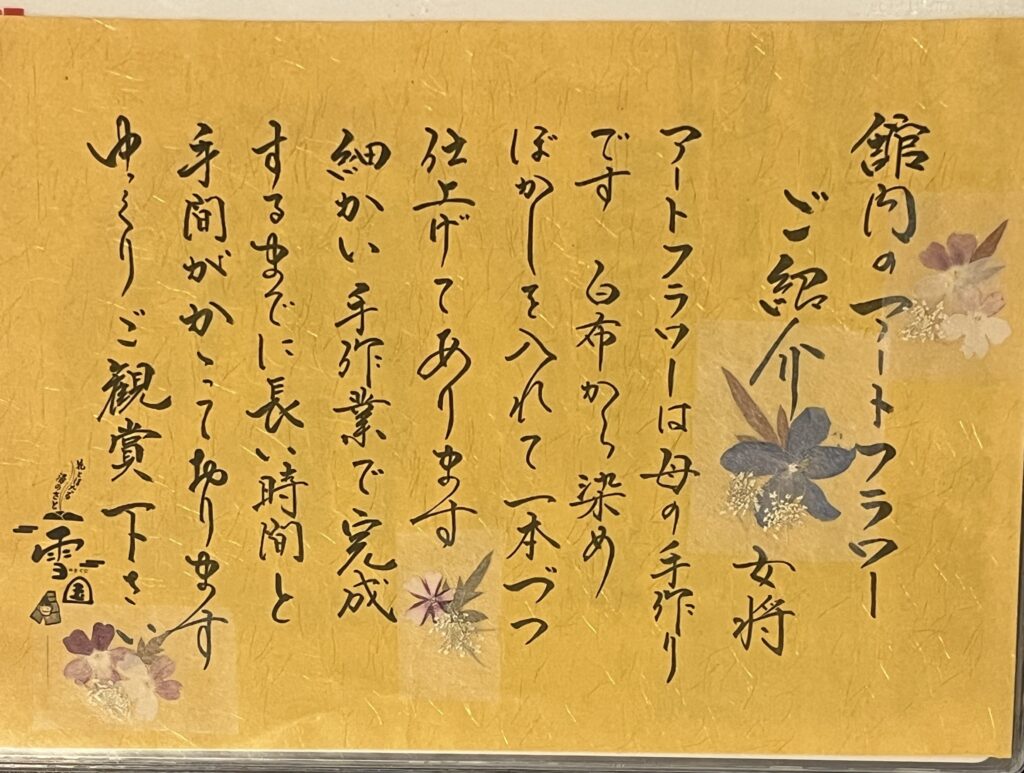 館内のアートフラワー
ご紹介 女将
アートフラワーは母の手作り
です 白布から染め
ぼかしを入れて一本づつ
仕上げてあります
細かい手作業で完成
するまでに長い時間と
手間がかかっております
ゆっくりご観賞下さい
雪国